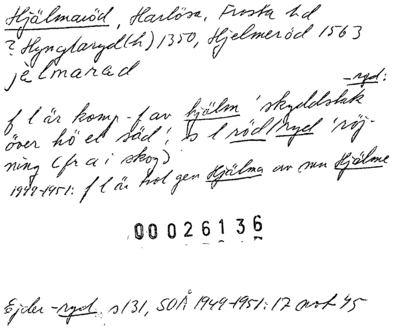 Hjälmaröd, Harlösa, Frosta hd
? Hynglaryd(h) 1350, Hjelmeröd 1563
jèlmarad
-ryd:
f l är komp-f av hjälm 'skyddstak
över hö el säd'; s l röd/ryd 'röj-
ning (fr a i skog)'
1949-1951: f l är hol gen Hjälma av mn Hjälme
00026136
Ejder -ryd s 131, SOÅ 1949-1951:17 not 45